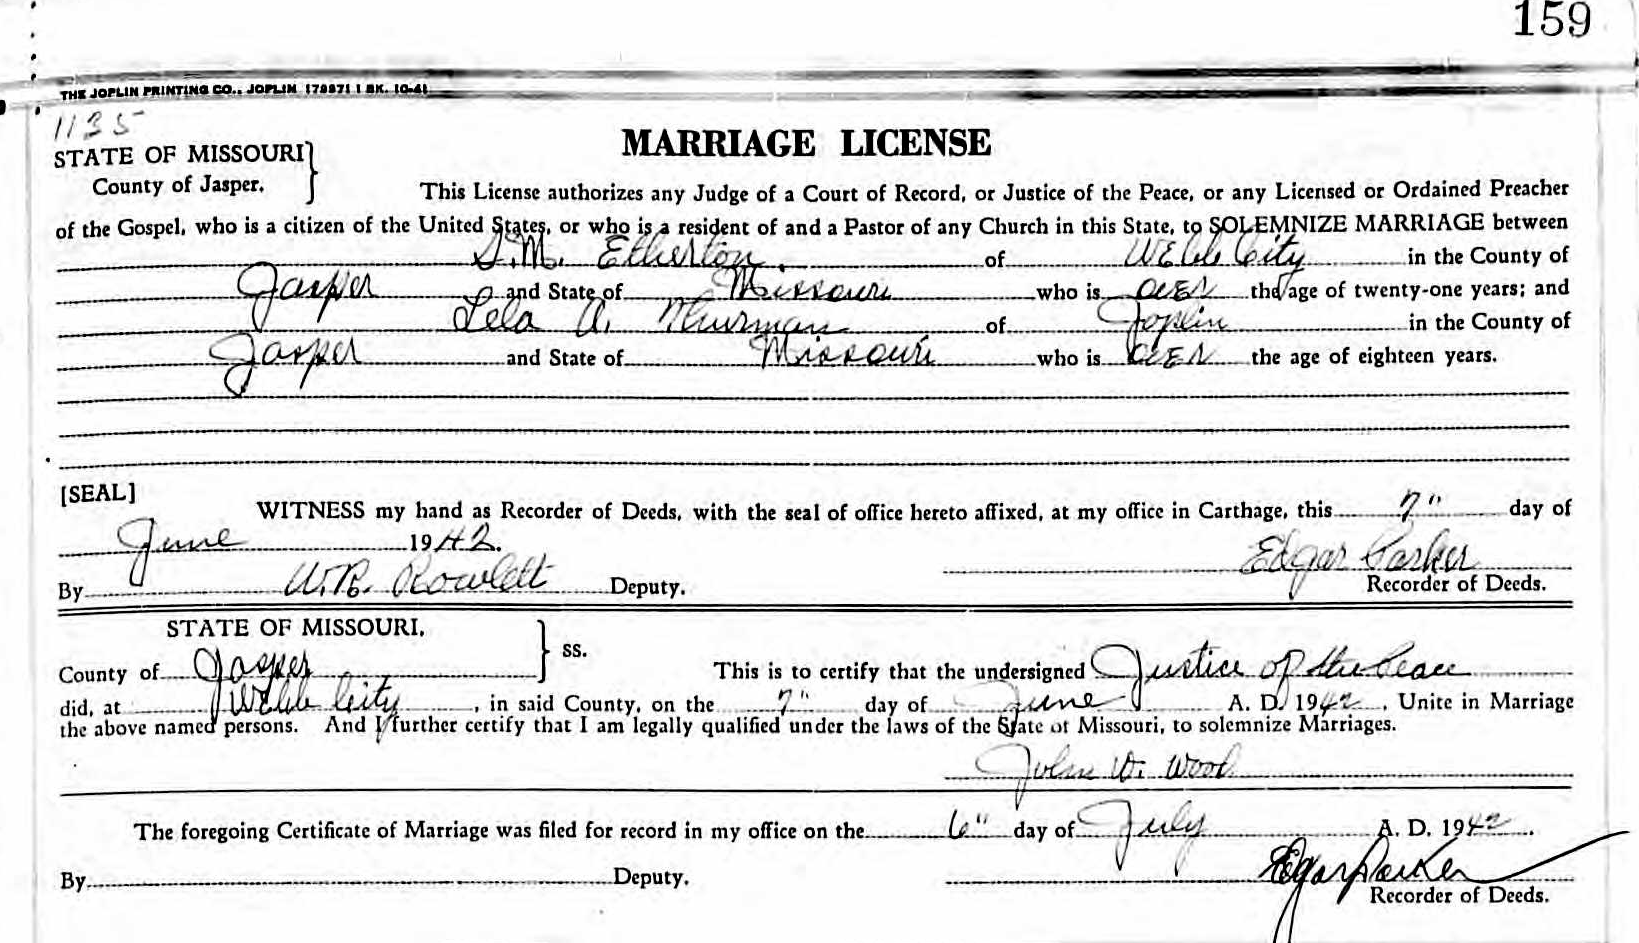 159
THE JOPLIN PRINTING CO., JOPLIN 179871 1 BK. 10-41
1135
MARRIAGE LICENSE
STATE OF MISSOURI
County of Jasper.
This License authorizes any Judge of a Court of Record, or Justice of the Peace, or any Licensed or Ordained Preacher
of the Gospel, who is a citizen of the United States, or who is a resident of and a Pastor of any Church in this State, to SOLEMNIZE MARRIAGE between
S.M. Etherton of Webb City in the County of
Jasper and State of Missouri who is over the age of twenty-one years; and
Lela A. Thurman of Joplin in the County of
Jasper and State of Missouri who is over the age of eighteen years.
[SEAL]
WITNESS my hand as Recorder of Deeds, with the seal of office hereto affixed, at my office in Carthage, this 7" day of
June 1942.
Edgar Parker
By W.R. Rowlett Deputy. Recorder of Deeds.
STATE OF MISSOURI,
ss.
County of Jasper This is to certify that the undersigned Justice of the Peace
did, at Webb City, in said County, on the 7" day of June A. D. 1942, Unite in Marriage
the above named persons. And I further certify that I am legally qualified under the laws of the State of Missouri, to solemnize Marriages.
John W. Wood
The foregoing Certificate of Marriage was filed for record in my office on the 6" day of July A. D. 1942.
Edgar Parker
By Deputy.
Recorder of Deeds.